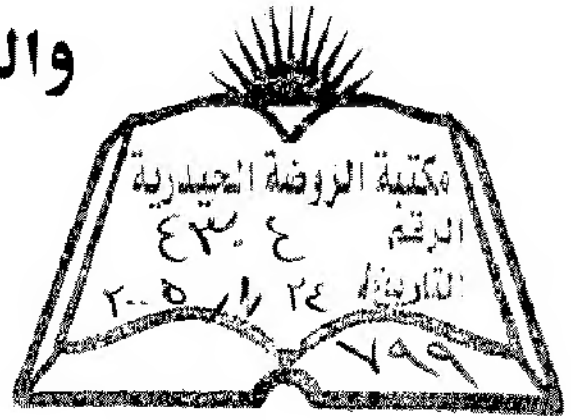 وال
مكتبة الروضة الحيدرية
الرقم ٤٣٠٤
التاريخ ٢٤ / ١ / ٢٠٠٥
٧٩٩